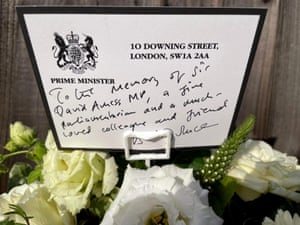 10 DOWNING STREET,
LONDON, SW1A 2AA
PRIME MINISTER
To the memory of Sir
David Amess MP, a fine
Parliamentarian and a much-
loved colleague and friend